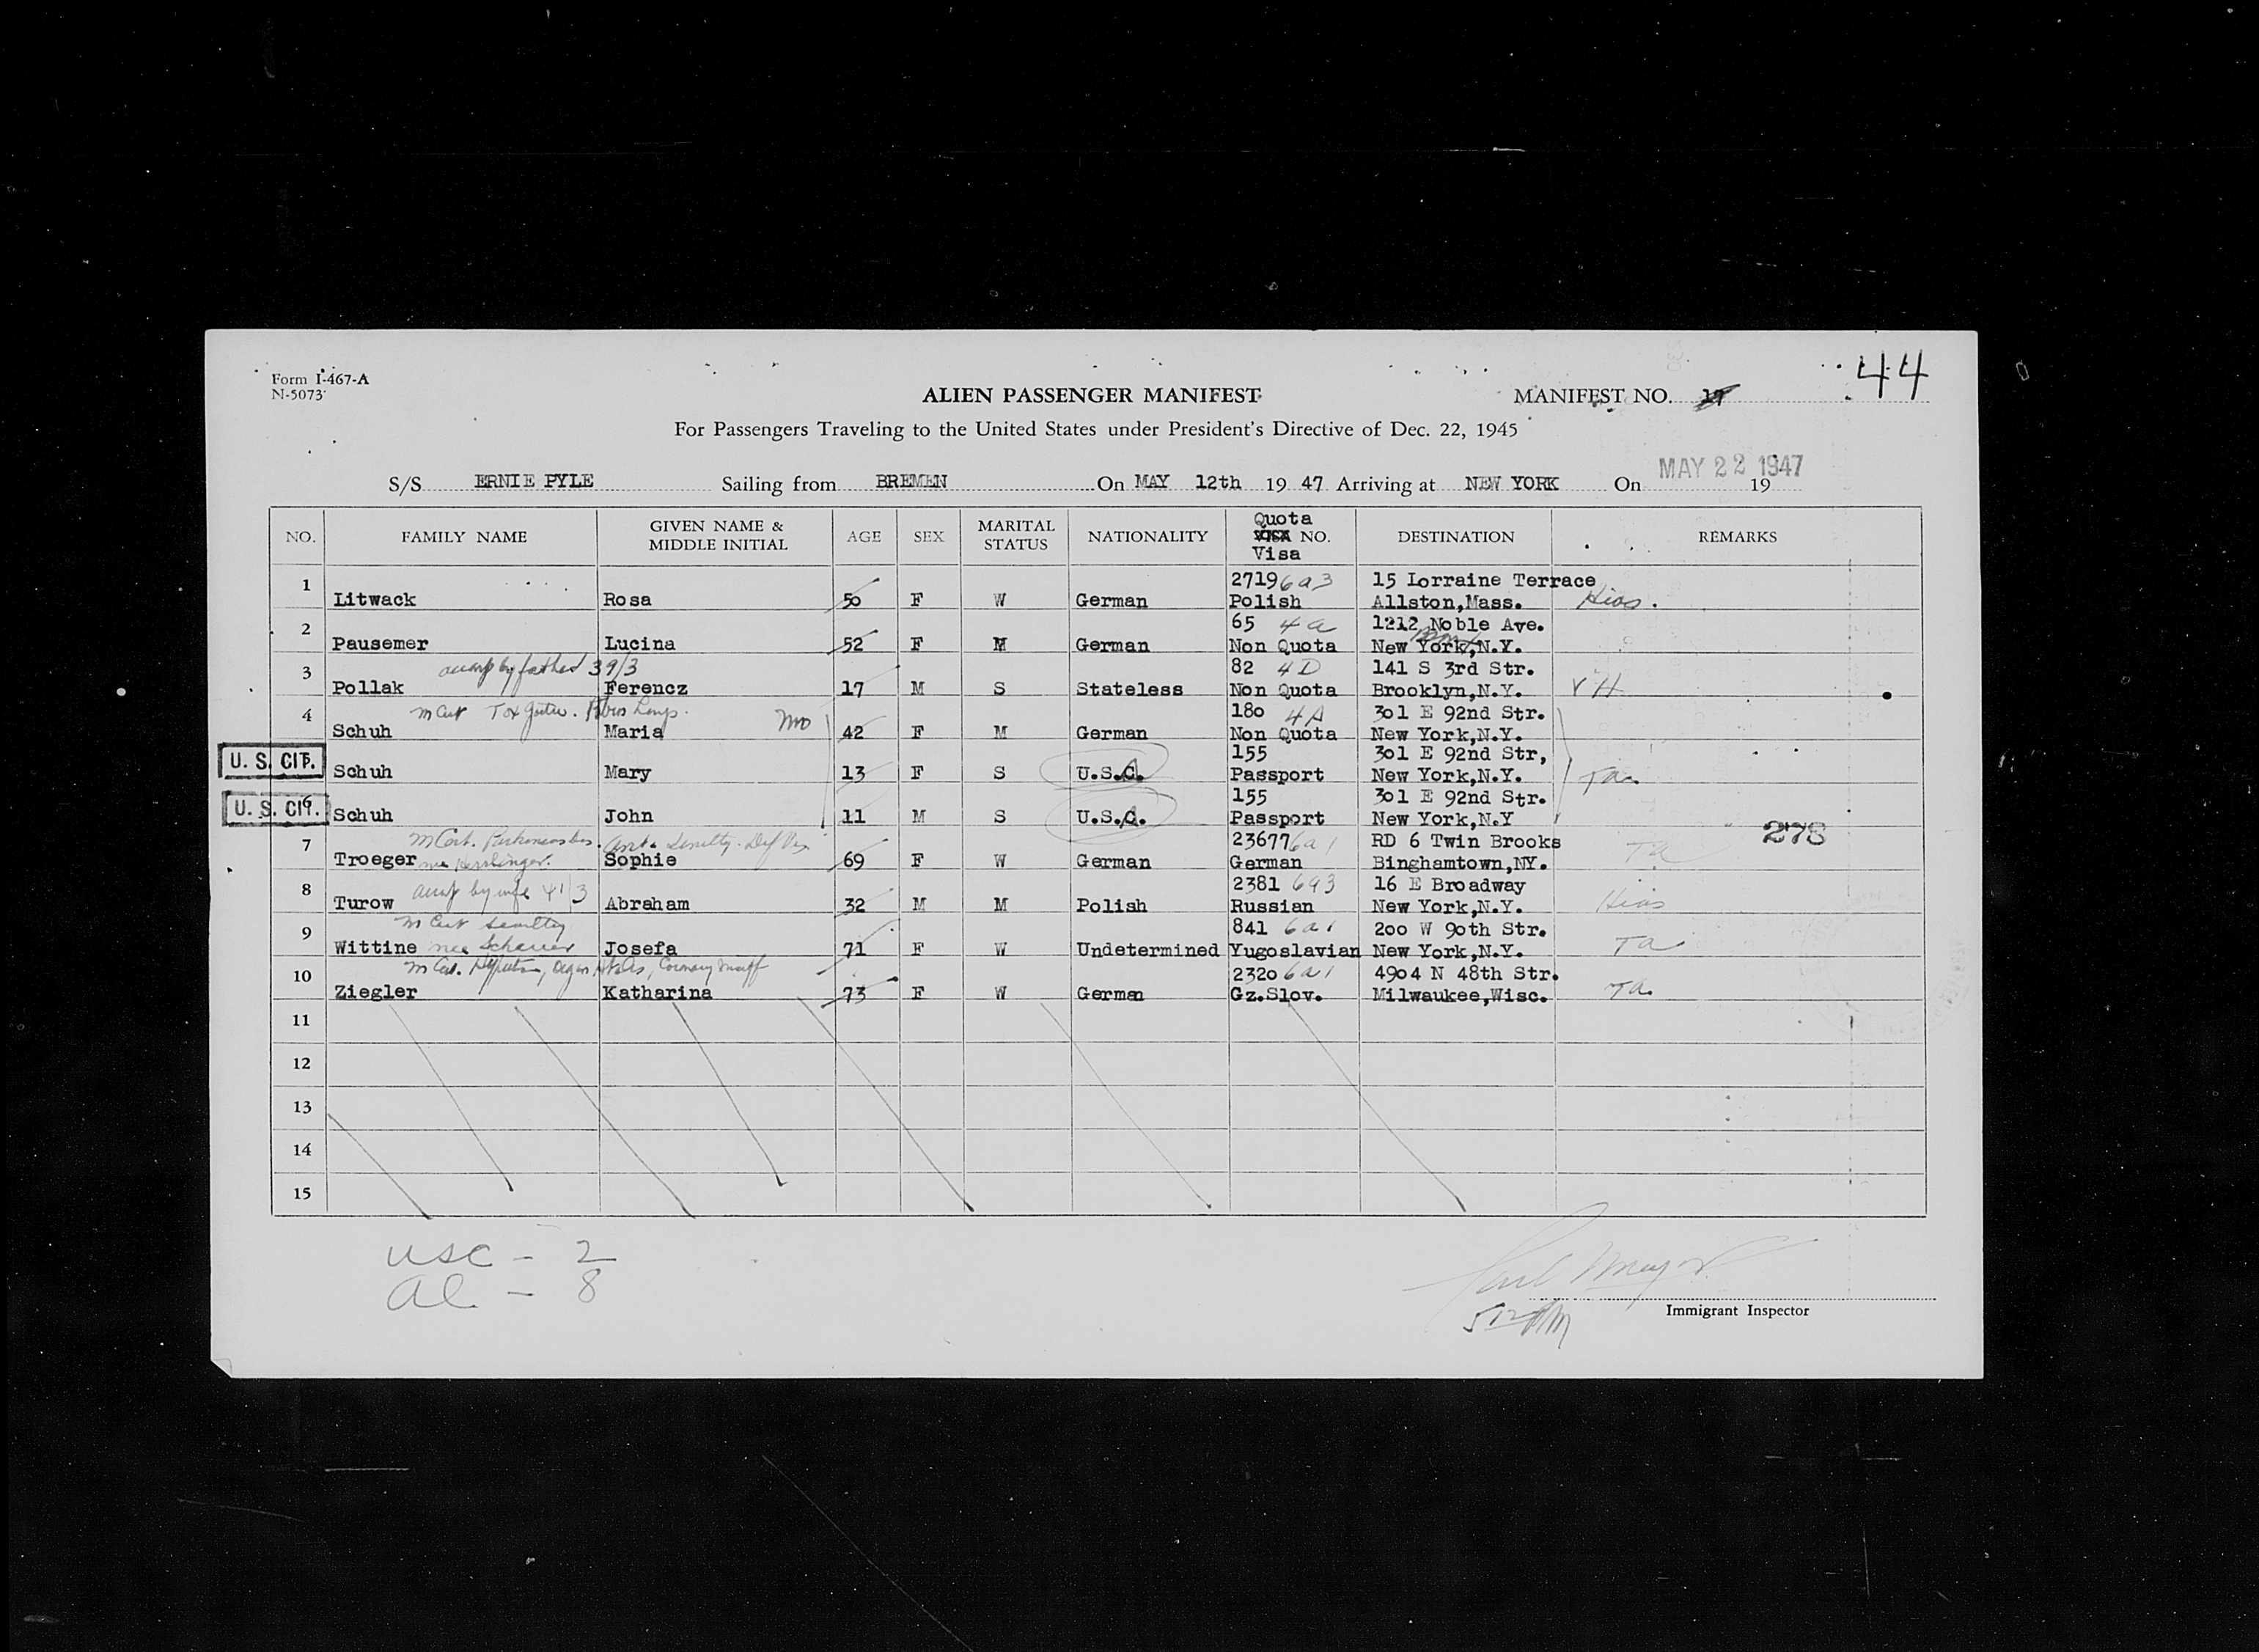 Form I-467-A
N-5073
ALIEN PASSENGER MANIFEST
MANIFEST NO. 44
For Passengers Traveling to the United States under President's Directive of Dec. 22, 1945
S/S ERNIE PYLE Sailing from BREMEN On MAY 12th 19 47 Arriving at NEW YORK On MAY 22 1947 19
NO. FAMILY NAME GIVEN NAME & MIDDLE INITIAL AGE SEX MARITAL STATUS NATIONALITY Quota VISA NO. Visa DESTINATION REMARKS
1 2719 6a3 15 Lorraine Terrace
Litwack Rosa 50 F W German Polish Allston,Mass. Hias.
2 65 4a 1212 Noble Ave.
Pausemer Lucina 52 F M German Non Quota New York,N.Y.
3 accomp by father 39/3 82 4D 141 S 3rd Str.
Pollak Ferencz 17 M S Stateless Non Quota Brooklyn,N.Y. VH
4 m Cert 180 4A 301 E 92nd Str.
Schuh Maria 42 F M German Non Quota New York,N.Y.
U. S. CIT. 155 301 E 92nd Str,
Schuh Mary 13 F S U.S.C. Passport New York,N.Y. Ta.
U. S. CIT. 6 155 301 E 92nd Str.
Schuh John 11 M S U.S.C. Passport New York,N.Y
278
7 m Cert. Senility 23677 6a1 RD 6 Twin Brooks
Troeger nee Sophie 69 F W German German Binghamtown,NY. Ta
8 accomp by wife 41/3 2381 6a3 16 E Broadway
Turow Abraham 32 M M Polish Russian New York,N.Y. Hias
9 m Cert Senility 841 6a1 200 W 90th Str.
Wittine nee Schauer Josefa 71 F W Undetermined Yugoslavian New York,N.Y. Ta
10 m Cert. 2320 6a1 4904 N 48th Str.
Ziegler Katharina 73 F W German Gz.Slov. Milwaukee,Wisc. Ta.
11
12
13
14
15
USC - 2
al - 8
Immigrant Inspector